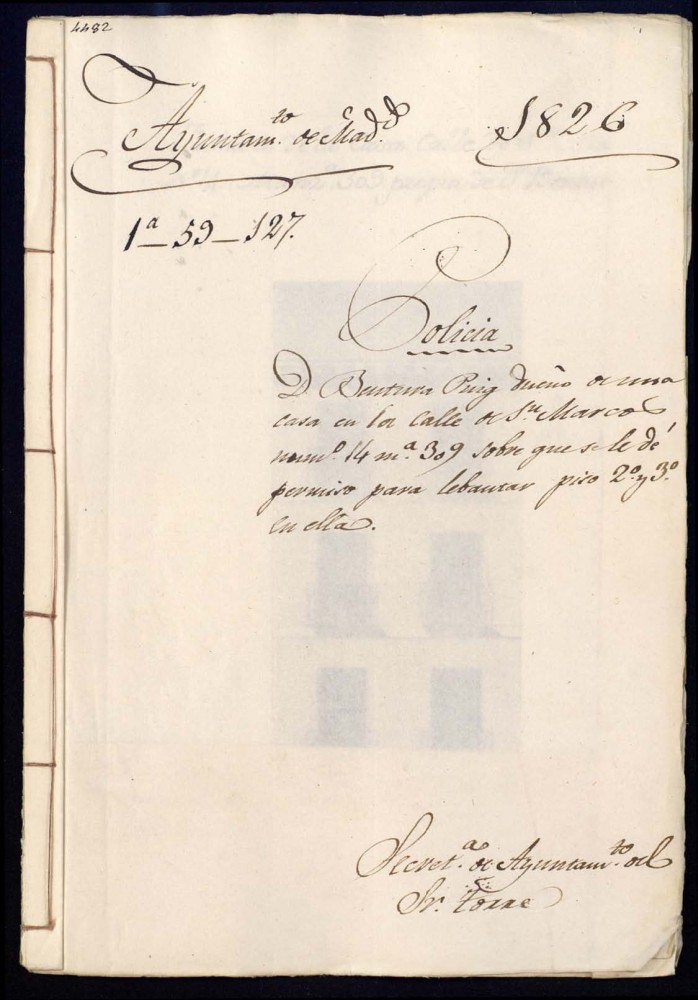 4482
Ayuntam.to de Mad.d 1826
1a_59_127.
Policia
D. Bentura Puig dueño de una
casa en la Calle de Sn. Marcos
num.o 14 m.a 309 sobre que se le dé
permiso para lebantar piso 2.o y 3.o
en ella.
Secret.a de Ayuntam.to del
Sr. Torre